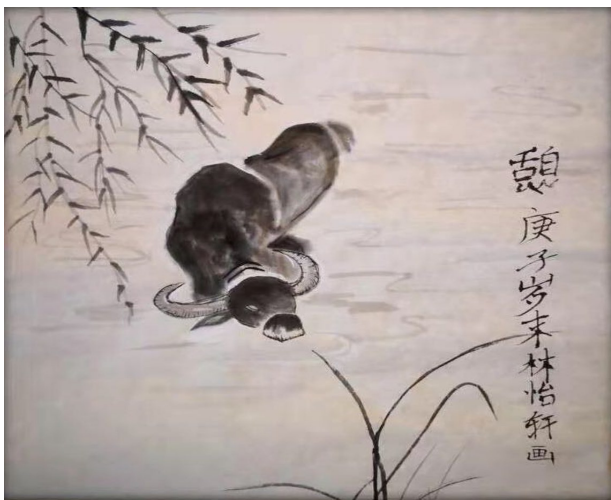 憩 庚子岁末林怡轩画